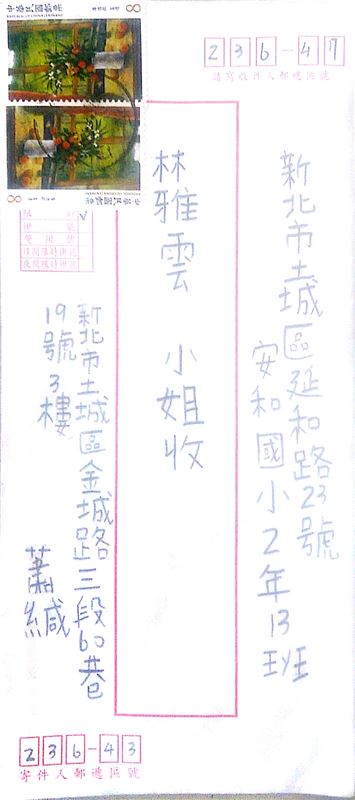 236-47
請寫收件人郵遞區號
新北市土城區延和路23號
安和國小2年13班
林雅雲 小姐收
新北市土城區金城路三段60巷
19號3樓
蕭緘
236-43
寄件人郵遞區號
中華民國郵票
8
中華民國郵票
8